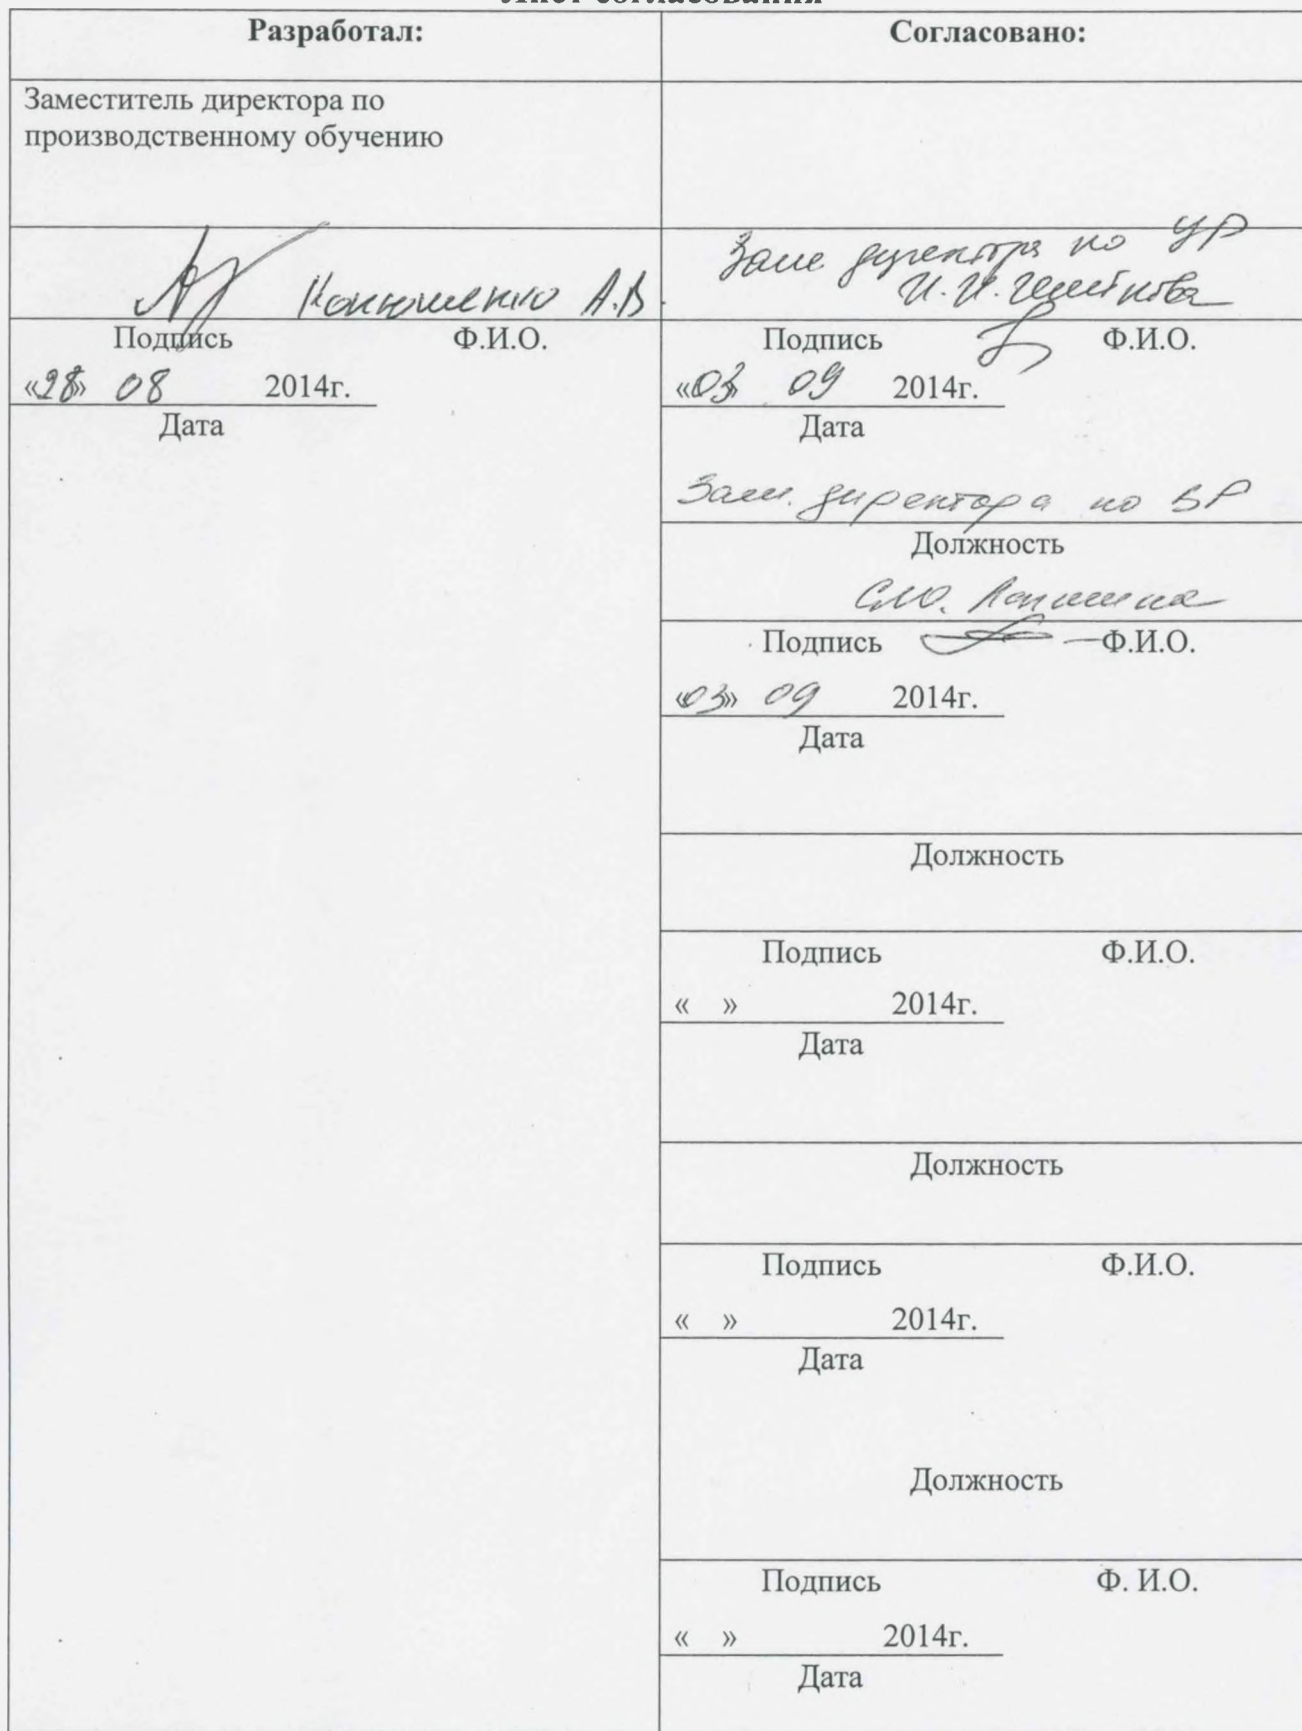 Лист согласования
Разработал:
Заместитель директора по
производственному обучению
Конюшенко А.В.
Подпись Ф.И.О.
«28» 08 2014г.
Дата
Согласовано:
Зам директора по УР
И.И.
Подпись Ф.И.О.
«03» 09 2014г.
Дата
Зам. директора по ВР
Должность
С.Ю.
Подпись Ф.И.О.
«03» 09 2014г.
Дата
Должность
Подпись Ф.И.О.
« » 2014г.
Дата
Должность
Подпись Ф.И.О.
« » 2014г.
Дата
Должность
Подпись Ф. И.О.
« » 2014г.
Дата